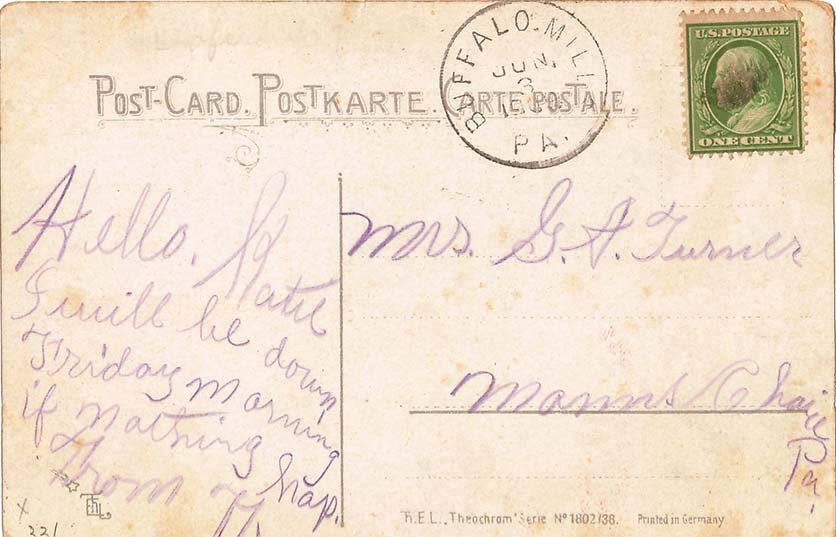 POST-CARD. POSTKARTE. CARTE POSTALE.
BUFFALO MILL
JUN.
3
PA.
U.S. POSTAGE
ONE CENT
Hello, Katie
I will be down
Friday morning
if nothing hap.
From
Mrs. G. F. Turner
Manns Choice
Pa.
X
221
T.H.E.L. „Theochrom" Serie Nº 1802/38. Printed in Germany